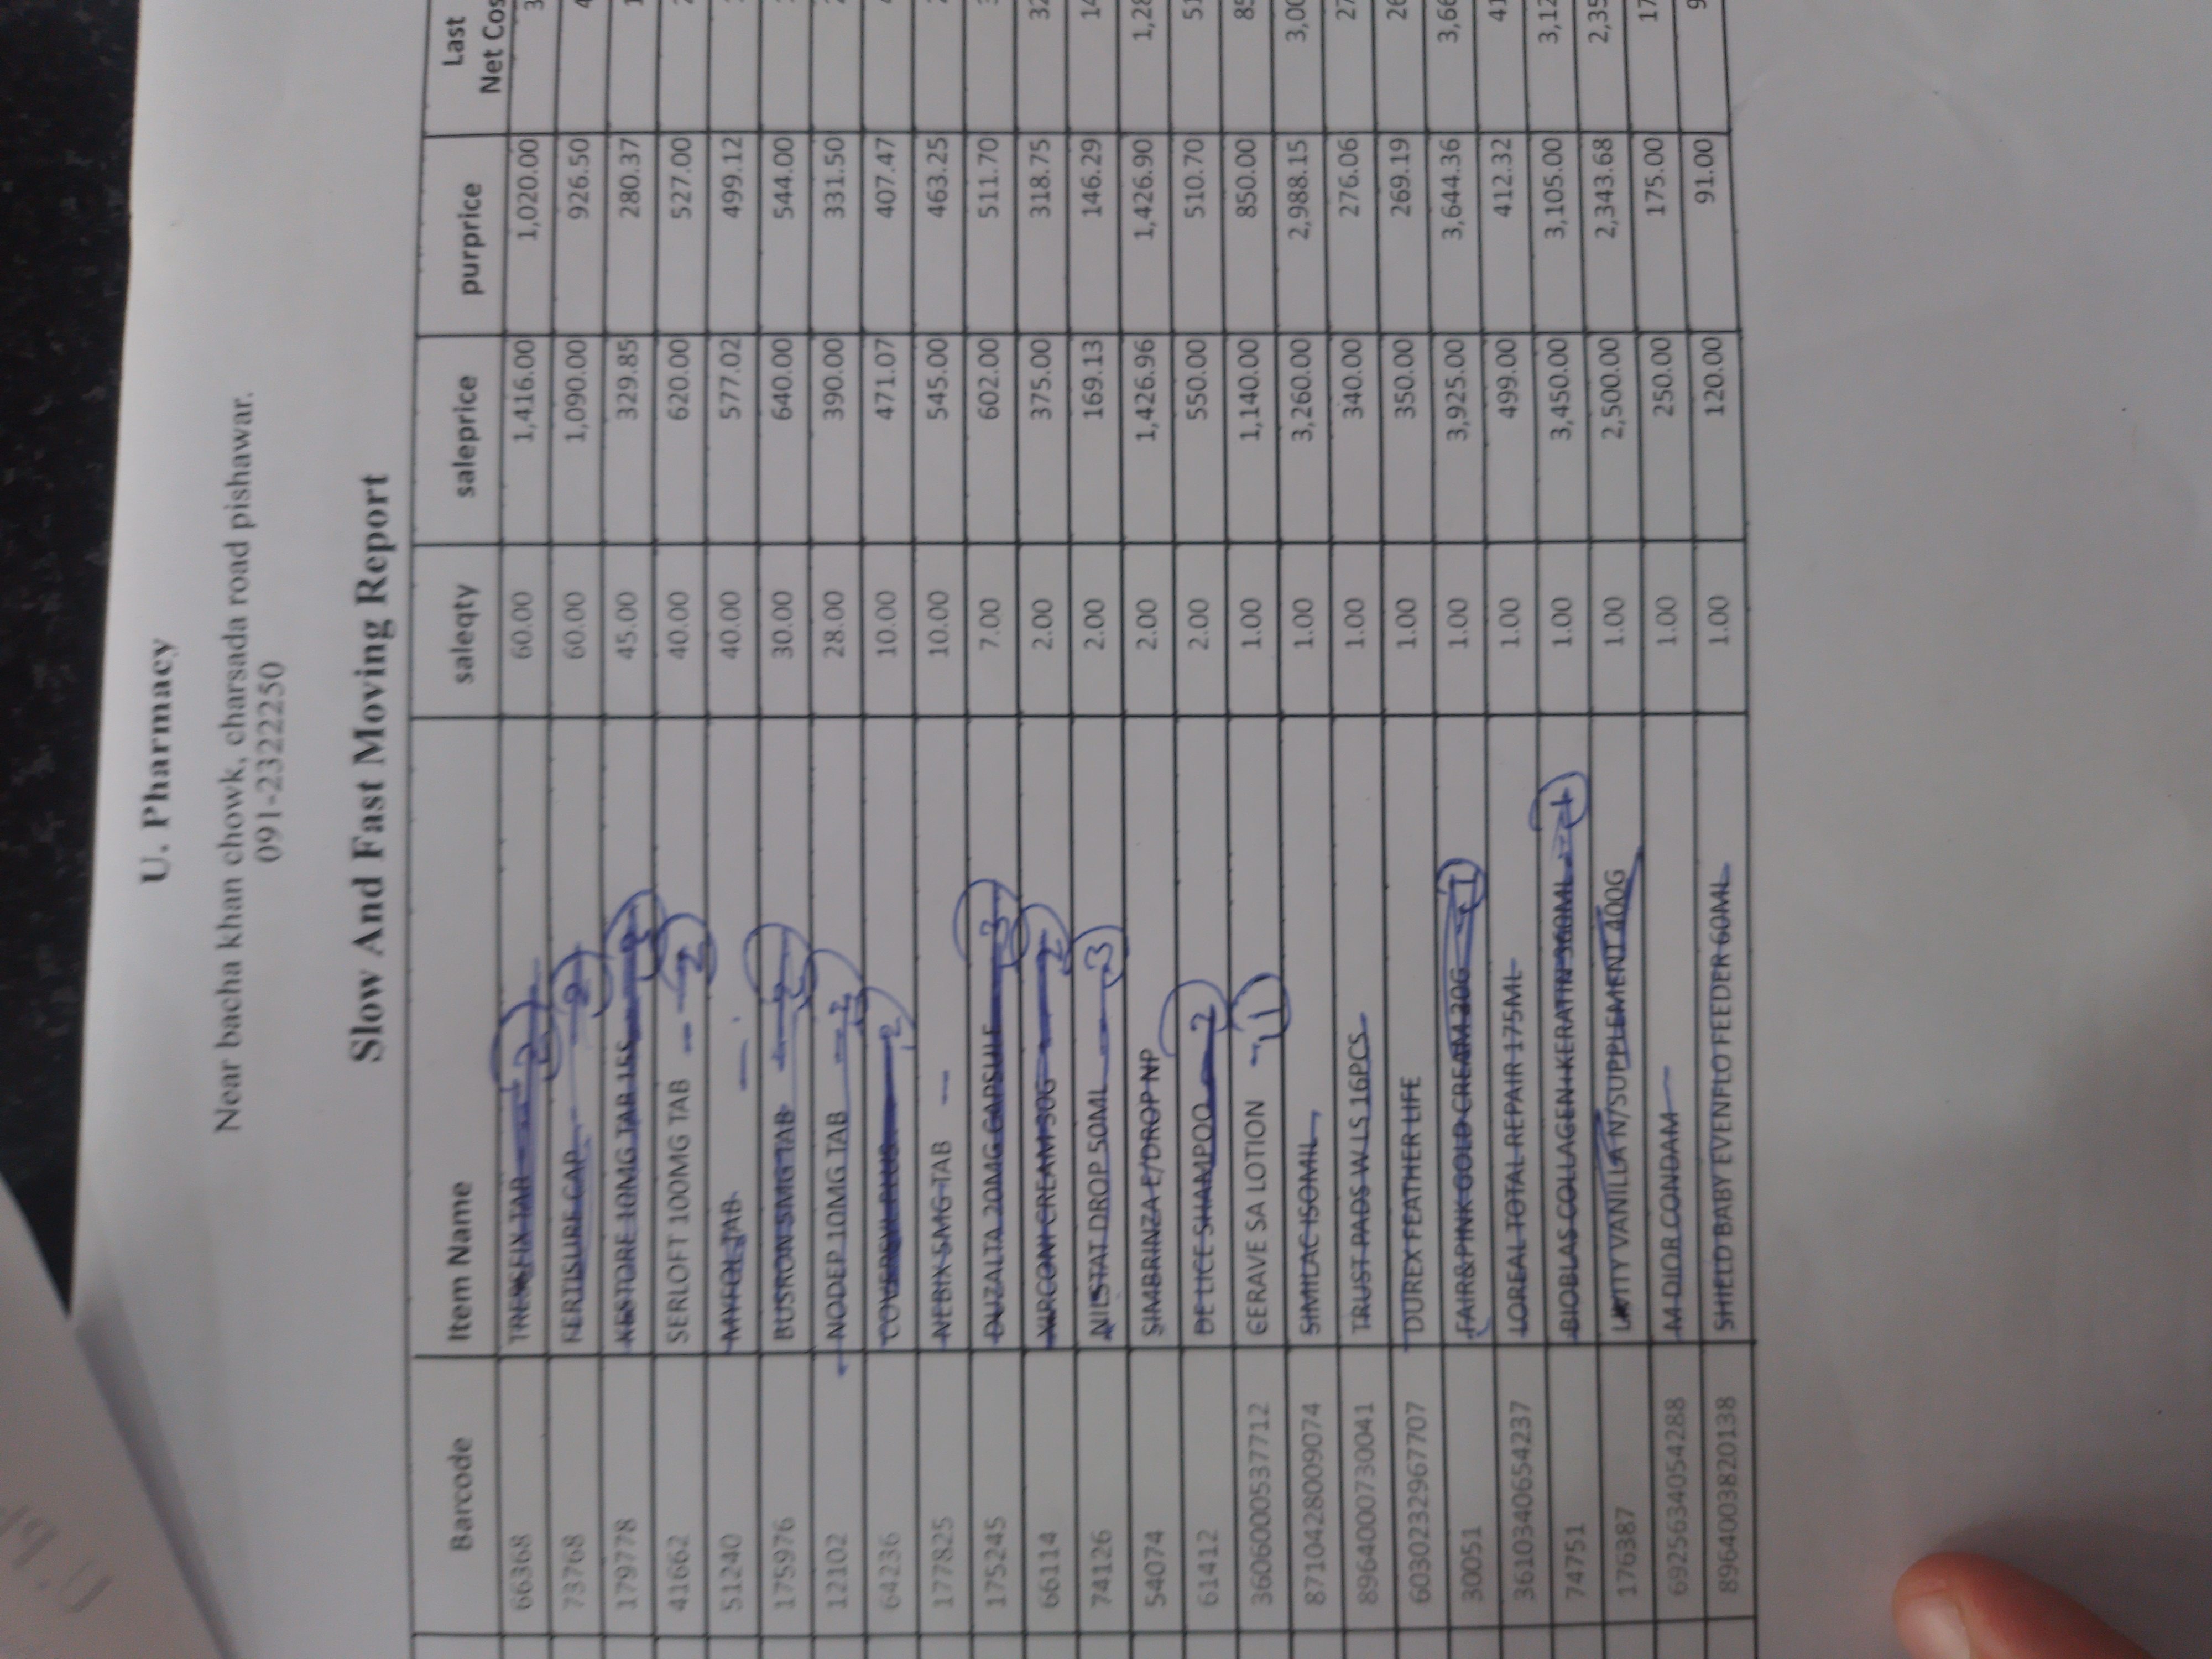 U. Pharmacy
Near bacha khan chowk, charsada road pishawar.
091-2322250
Slow And Fast Moving Report
Barcode Item Name saleqty saleprice purprice Last Net Cos
66368 TAB 2 60.00 1,416.00 1,020.00 3
73768 FERTISURE CAP 2 60.00 1,090.00 926.50 4
179778 XESTORE 10MG TAB 15S 45.00 329.85 280.37 1
41662 SERLOFT 100MG TAB 2 40.00 620.00 527.00
51240 MYFOL TAB 40.00 577.02 499.12
175976 BUSRON 5MG TAB 2 30.00 640.00 544.00
12102 NODEP 10MG TAB 2 28.00 390.00 331.50
64236 PLUS 2 10.00 471.07 407.47
177825 NEBIX 5MG TAB 10.00 545.00 463.25
175245 DUZALTA 20MG CAPSULE 3 7.00 602.00 511.70
66114 XIRCONI CREAM 30G 2 2.00 375.00 318.75 32
74126 NILSTAT DROP 50ML 3 2.00 169.13 146.29 14
54074 SIMBRINZA E/DROP NP 2.00 1,426.96 1,426.90 1,28
61412 DE LICE SHAMPOO 2 2.00 550.00 510.70 51
3606000537712 CERAVE SA LOTION 1 1.00 1,140.00 850.00 85
8710428009074 SIMILAC ISOMIL 1.00 3,260.00 2,988.15 3,00
8964000730041 TRUST PADS W LS 16PCS 1.00 340.00 276.06 27
6030232967707 DUREX FEATHER LIFE 1.00 350.00 269.19 26
30051 FAIR&PINK GOLD CREAM 20G 1 1.00 3,925.00 3,644.36 3,66
3610340654237 LOREAL TOTAL REPAIR 175ML 1.00 499.00 412.32 41
74751 BIOBLAS COLLAGEN+KERATIN 360ML 1 1.00 3,450.00 3,105.00 3,12
176387 VANILLA N/SUPPLEMENT 400G 1.00 2,500.00 2,343.68 2,35
6925634054288 M DIOR CONDAM 1.00 250.00 175.00 17
8964003820138 SHIELD BABY EVENFLO FEEDER 60ML 1.00 120.00 91.00 9